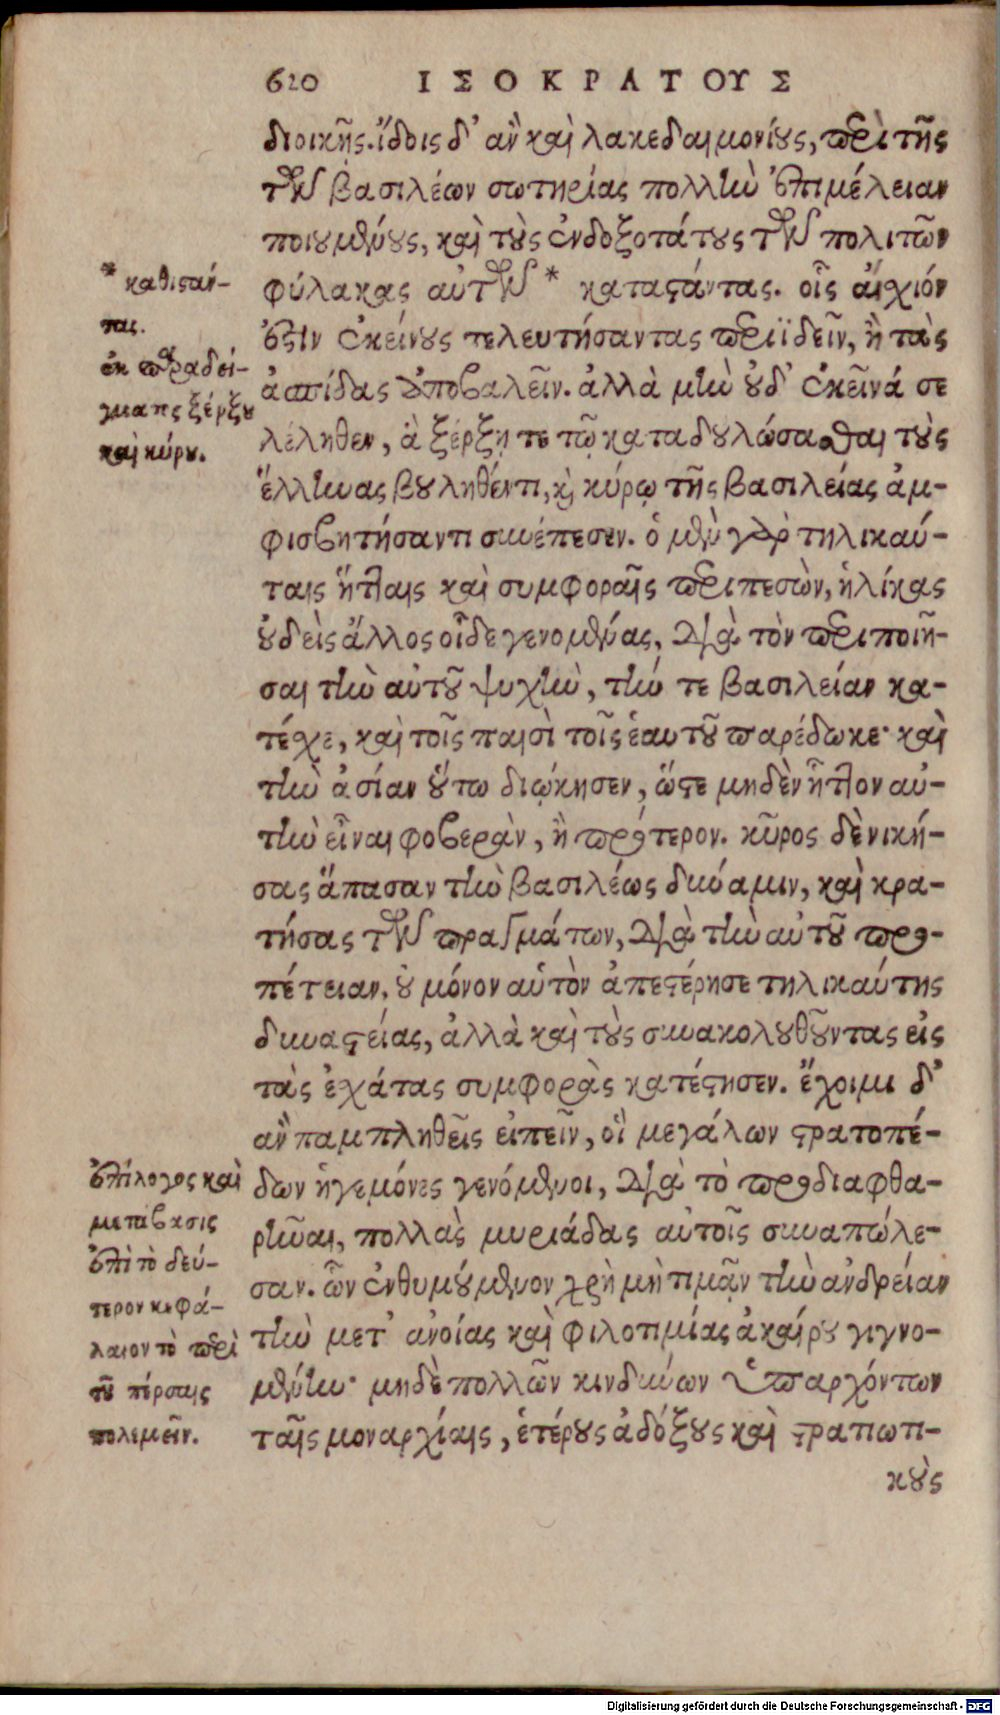 620 ΙΣΟΚΡΑΤΟΥΣ
διοικῇς. ἴδοις δ' ἂν καὶ λακεδαιμονίους, περὶ τῆς
τῶν βασιλέων σωτηρίας πολλὴν ἐπιμέλειαν
ποιουμένους, καὶ τοὺς ἐνδοξοτάτους τῶν πολιτῶν
φύλακας αὐτῶν * καταστάντας. οἷς αἴσχιόν
ἐστιν ἐκείνους τελευτήσαντας περιϊδεῖν, ἢ τὰς
ἀσπίδας ἀποβαλεῖν. ἀλλὰ μὴν οὐδ' ἐκεῖνά σε
λέληθεν, ἃ ξέρξῃ τε τῷ καταδουλώσασθαι τοὺς
ἕλληνας βουληθέντι, καὶ κύρῳ τῆς βασιλείας ἀμ-
φισβητήσαντι συνέπεσεν. ὁ μὲν γὰρ τηλικαύ-
ταις ἥτταις καὶ συμφοραῖς περιπεσὼν, ἡλίκας
οὐδεὶς ἄλλος οἶδε γενομένας, διὰ τὸν περιποιῆ-
σαι τὴν αὑτοῦ ψυχὴν, τήν τε βασιλείαν κα-
τέσχε, καὶ τοῖς παισὶ τοῖς ἑαυτοῦ παρέδωκε· καὶ
τὴν ἀσίαν οὕτω διῴκησεν, ὥστε μηδὲν ἧττον αὐ-
τὴν εἶναι φοβερὰν, ἢ πρότερον. κῦρος δὲ νική-
σας ἅπασαν τὴν βασιλέως δύναμιν, καὶ κρα-
τήσας τῶν πραγμάτων, διὰ τὴν αὑτοῦ προ-
πέτειαν, οὐ μόνον αὑτὸν ἀπεστέρησε τηλικαύτης
δυναστείας, ἀλλὰ καὶ τοὺς συνακολουθοῦντας εἰς
τὰς ἐσχάτας συμφορὰς κατέστησεν. ἔχοιμι δ'
ἂν παμπληθεῖς εἰπεῖν, οἳ μεγάλων στρατοπέ-
δων ἡγεμόνες γενόμενοι, διὰ τὸ προδιαφθα-
ρῆναι, πολλὰς μυριάδας αὑτοῖς συναπώλε-
σαν. ὧν ἐνθυμούμενον χρὴ μὴ τιμᾷν τὴν ἀνδρείαν
τὴν μετ' ἀνοίας καὶ φιλοτιμίας ἀκαίρου γιγνο-
μένην· μηδὲ πολλῶν κινδύνων ὑπαρχόντων
ταῖς μοναρχίαις, ἑτέρους ἀδόξους καὶ στρατιωτι-
κοὺς
* καθιστάν-
τας.
ἐκ παραδεί-
γματος ξέρξου
καὶ κύρου.
ἐπίλογος καὶ
μετάβασις
ἐπὶ τὸ δεύ-
τερον κεφά-
λαιον τὸ περὶ
τοῦ πέρσαις
πολεμεῖν.
Digitalisierung gefördert durch die Deutsche Forschungsgemeinschaft - DFG